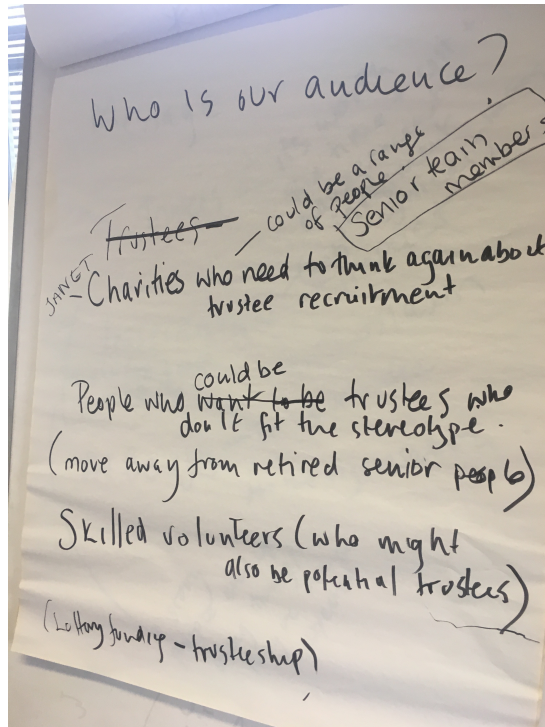 Who is our audience?
could be a range
of people.
Senior team
members
Trustees
JANET
- Charities who need to think again about
trustee recruitment
could be
People who want to be trustees who
don't fit the stereotype.
(move away from retired senior people)
Skilled volunteers (who might
also be potential trustees)
(Lottery funding - trusteeship)